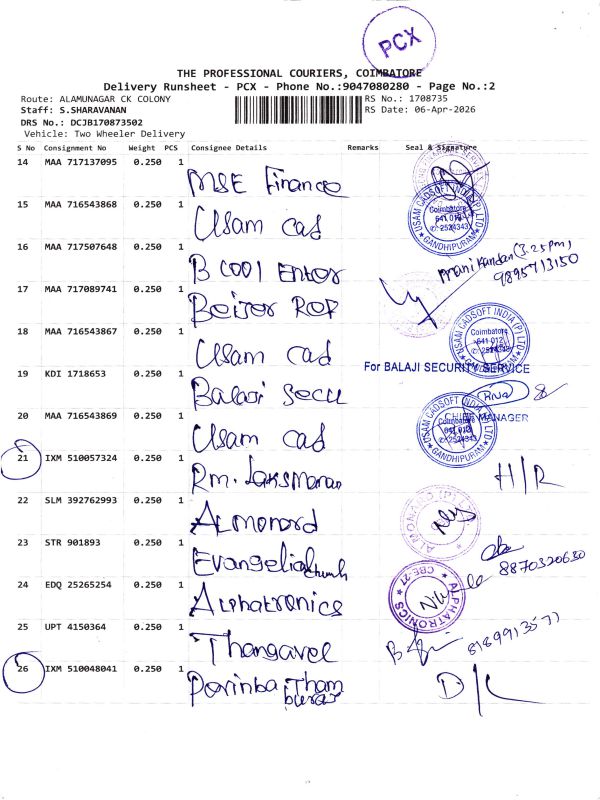 PCX
THE PROFESSIONAL COURIERS, COIMBATORE
Delivery Runsheet - PCX - Phone No.:9047080280 - Page No.:2
Route: ALAMUNAGAR CK COLONY
RS No.: 1708735
Staff: S.SHARAVANAN
RS Date: 06-Apr-2026
DRS No.: DCJB170873502
Vehicle: Two Wheeler Delivery
S No Consignment No Weight PCS Consignee Details Remarks Seal & Signature
14 MAA 717137095 0.250 1 MSE Finance
15 MAA 716543868 0.250 1 Usam cad
USAM CADSOFT INDIA (P) LTD
Coimbatore
641 012
GANDHIPURAM
16 MAA 717507648 0.250 1 B COOl Enter
Mani Kandan (3.25 Pm)
9895713150
17 MAA 717089741 0.250 1
18 MAA 716543867 0.250 1 Usam cad
USAM CADSOFT INDIA (P) LTD
Coimbatore
641 012
For BALAJI SECURITY SERVICE
19 KDI 1718653 0.250 1 Balaji Secu
MANAGER
20 MAA 716543869 0.250 1 Usam cad
USAM CADSOFT INDIA (P) LTD
Coimbatore
641 012
GANDHIPURAM
21 IXM 510057324 0.250 1 Rm.
H/R
22 SLM 392762993 0.250 1 Almonard
ALMONARD (P)
23 STR 901893 0.250 1 Evangelical church
8870320630
24 EDQ 25265254 0.250 1 Alphatronics
ALPHATRONICS
CBE-27
25 UPT 4150364 0.250 1 Thangavel
26 IXM 510048041 0.250 1
D/L